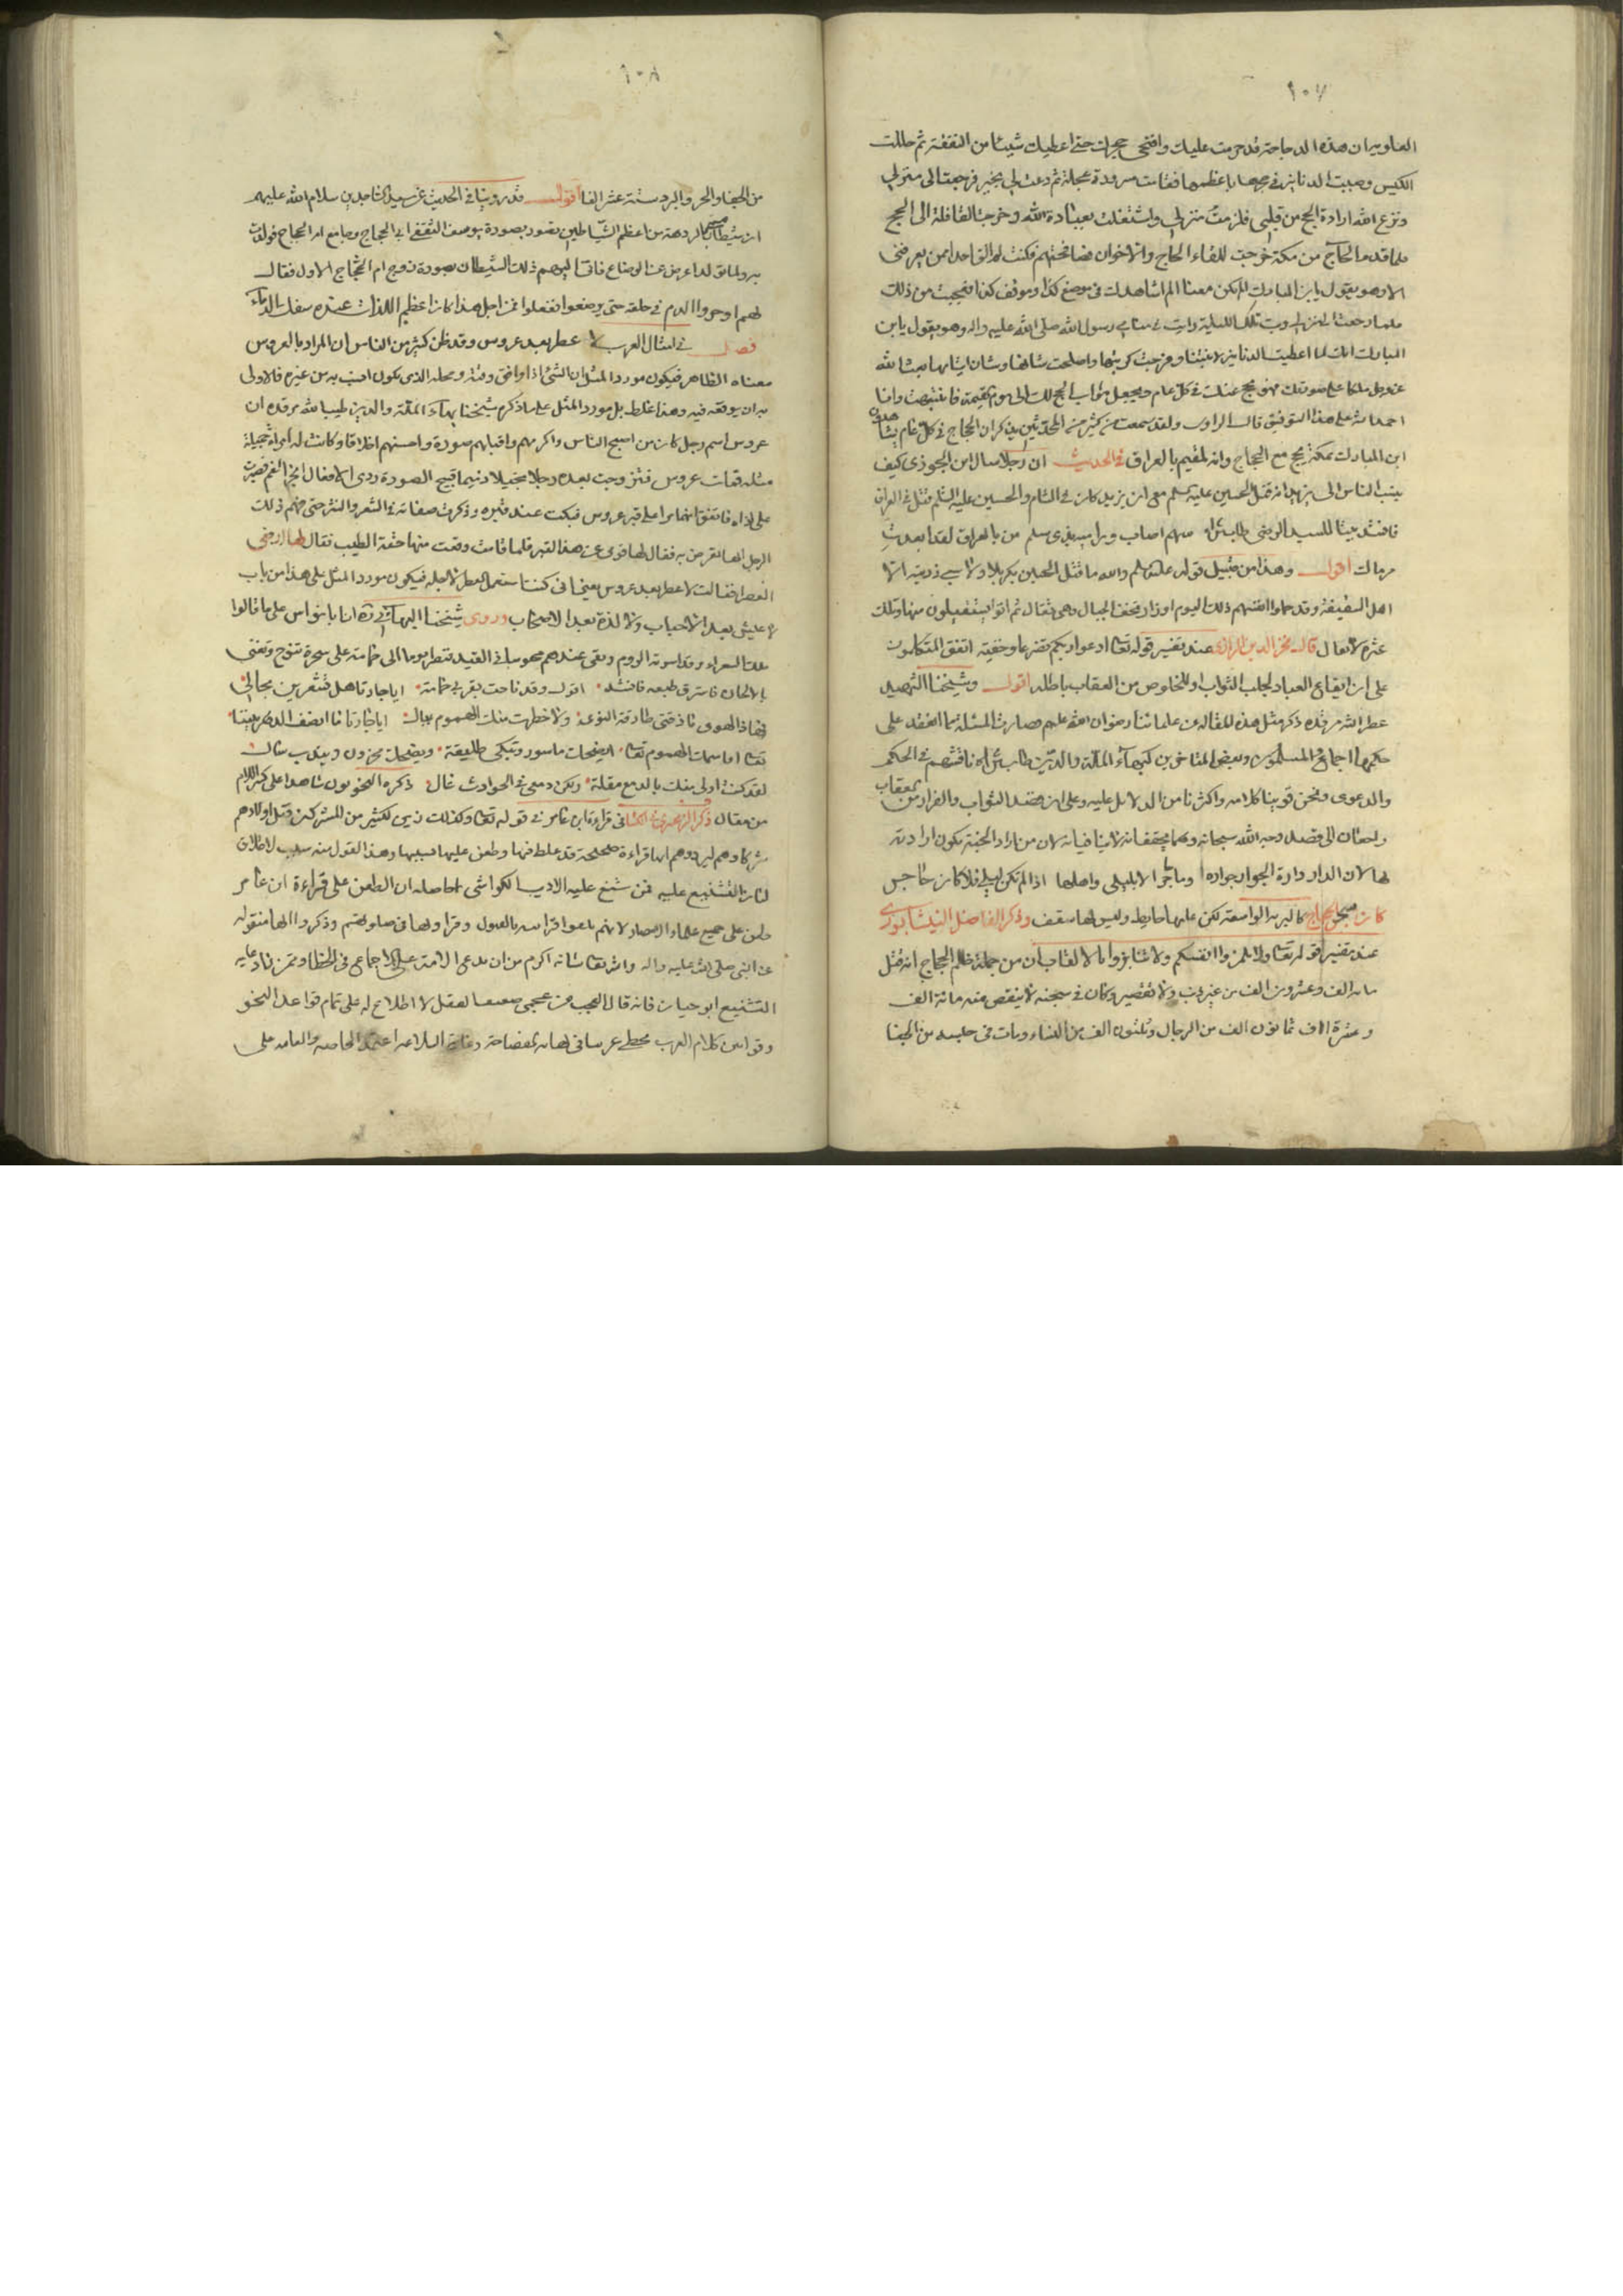 ١٠٧
العلويه ان هذه الدجاجة قد حرمت عليك وافتحي حجرك حتى اعطيك شيئا من النفقة ثم حللت
الكيس وصببت الدنانير في حجرها باعظمها فقامت مسرورة عجلة ثم دعت لي بخير فرجعت الى منزلي
ونزع الله ارادة الحج من قلبي فلزمت منزلي واشتغلت بعبادة الله وخرجت القافلة الى الحج
فلما قدم الحاج من مكة خرجت للقاء الحاج والاخوان فصافحتهم فكنت لم الق احدا ممن يعرفني
الا وهو يقول يا بن المبارك الم تكن معنا الم اشاهدك في موضع كذا وموقف كذا فعجبت من ذلك
فلما رجعت الى منزلي وبت تلك الليلة رايت في منامي رسول الله صلى الله عليه واله وهو يقول يا بن
المبارك انك لما اعطيت الدنانير لابنتنا وفرجت كربتها واصلحت شانها وشان ايتامها بعث الله
عز وجل ملكا على صورتك فهو يحج عنك في كل عام ويجعل ثواب الحج لك الى يوم القيمة فانتبهت وانا
احمد الله على هذا التوفيق قال الراوي ولقد سمعت من كثير من المحدثين يذكر ان الحجاج في كل عام يشاهدون
ابن المبارك بمكة يحج مع الحجاج وانه لمقيم بالعراق في الحديث ان رجلا سال ابن الجوزي كيف
ينسب الناس الى يزيد انه قتل الحسين عليه السلم مع ان يزيد كان في الشام والحسين عليه السلم قتل في العراق
فانشد بيتا للسيد الرضي طاب ثراه سهم اصاب وراميه بذي سلم من بالعراق لقد ابعدت
مرماك اقول وهذا من قبيل قوله عليه السلم والله ما قتل الحسين بكربلا ولا سبي ذريته الا
اهل السقيفة وقد حملوا انفسهم ذلك اليوم اوزار تخفف الجبال وهي ثقال ثم اتوا يستقيلون منها وتلك
عثرة لا تقال قال فخر الدين الرازي عند تفسير قوله تعالى ادعوا ربكم تضرعا وخفية اتفق المتكلمون
على ان ايقاع العبادة لجلب الثواب او للخلوص من العقاب باطله اقول وشيخنا الشهيد
عطر الله مرقده ذكر مثل هذه المقالة عن علمائنا رضوان الله عليهم فصارت المسئلة مما انعقد على
حكمها اجماع المسلمين وبعض المتاخرين كبهاء الملة والدين طاب ثراه ناقشهم في الحكم
والدعوى ونحن قوينا كلامه واكثرنا من الدلايل عليه وعلى ان قصد الثواب والفرار من العقاب
راجعان الى قصد وجه الله سبحانه
لها لان الدار دارة الجوار جواره وما حب الا ليلى واهلها اذا لم تكن ليلى فلا كان حاجر
كان سجن الحجاج كالبرية الواسعة لكن عليها حايط وليس لها سقف وذكر الفاضل النيشابوري
عند تفسير قوله تعالى ولا تلمزوا انفسكم ولا تنابزوا بالالقاب ان من جملة ظلم الحجاج انه قتل
مائه الف وعشرون الف من غير ذنب ولا تقصير وكان في سجنه لا ينقص منه مائة الف
وعشرة الاف ثمانون الف من الرجال وثلثون الف من النساء ومات في حبسه من الجفا
١٠٨
من الجفا والحر والبرد ستة عشر الفا اقول وقد روينا في الحديث عن سيد الساجدين سلام الله عليهم
ان شيطان الردهة من اعظم الشياطين تصور بصورة يوسف الثقفي ابي الحجاج وجامع ام الحجاج فولدت
به ولما تولد اعرض عن الرضاع فاتى اليهم ذلك الشيطان بصورة زوج ام الحجاج الاول فقال
لهم اوجروا الدم في حلقه حتى يرضعوا ففعلوا فمن اجل هذا كان اعظم اللذات عنده سفك الدماء
فصل في امثال العرب لا عطر بعد عروس وقد ظن كثير من الناس ان المراد بالعروس
معناه الظاهر فيكون مورد المثل ان الشئ اذا وافق وقته ومحله الذي يكون انسب به من غيره فالاولى
به ان يوقعه فيه وهذا غلط بل مورد المثل على ما ذكره شيخنا بهاء الملة والدين طيب الله مرقده ان
عروس اسم رجل كان من اصبح الناس واكرمهم واقبالهم صورة واحسنهم اخلاقا وكانت له امراة جميلة
مثله فمات عروس فتزوجت بعده رجلا بخيلا دنيما قبيح الصورة ردي الافعال ابخر الفم فصبرت
على اذاه فاتفق انهما مرا على قبر عروس فبكت عند قبره وذكرت صفاته في الشعر والنثر حتى فهم ذلك
الرجل انها تعرض به فقال لها قومي عن هذا القبر فلما قامت وقعت منها حقة الطيب فقال لها ارفعي
العطر فقالت لا عطر بعد عروس يعني اني كنت استعمل العطر لاجله فيكون مورد المثل على هذا من باب
لا عيش بعد الاحباب ولا لذة بعد الاصحاب وروى شيخنا البهائي ره ان ابا فراس على ما قالوا
ملك الشعراء وقد اسرته الروم وبقي عندهم محبوسا في القيد فنظر يوما الى حمامة على شجرة تنوح وتغني
بالالحان فاسترق طبعه فانشد اقول وقد ناحت بقربي حمامة ايا جارتا هل تشعرين بحالي
معاذ الهوى ما ذقت طارقة النوى ولا خطرت منك الهموم ببال ايا جارتا ما انصف الدهر بيننا
تعالى اقاسمك الهموم تعالى ايضحك ماسور وتبكي طليقة ويضحك محزون ويندب سال
لقد كنت اولى منك بالدمع مقلة ولكن دمعي في الحوادث غال ذكره النحويون شاهدا على كسر اللام
من تعال ذكر الزمخشري في الكشاف قراءة ابن عامر في قوله تعالى وكذلك زين لكثير من المشركين قتل اولادهم
شركاؤهم ليردوهم انها قراءة قد غلط فيها وطعن عليها بسببها وهذا القول منه سبب لاطلاق
لسان التشنيع عليه فمن شنع عليه الاديب الكواشي ما حاصله ان الطعن على قراءة ابن عامر
طعن على جميع علماء الامصار لانهم تلقوا قراءته بالقبول وقراوا بها في صلوتهم وذكروا انها منقولة
عن النبي صلى الله عليه واله والله تعالى شانه اكرم من ان يدعى الامة على اجماع في الخطا وممن زاد عليه
التشنيع ابو حيان فانه قال العجب من عجمي ضعيف العقل لا اطلاع له على تمام قواعد النحو
وقوانين كلام العرب عربي